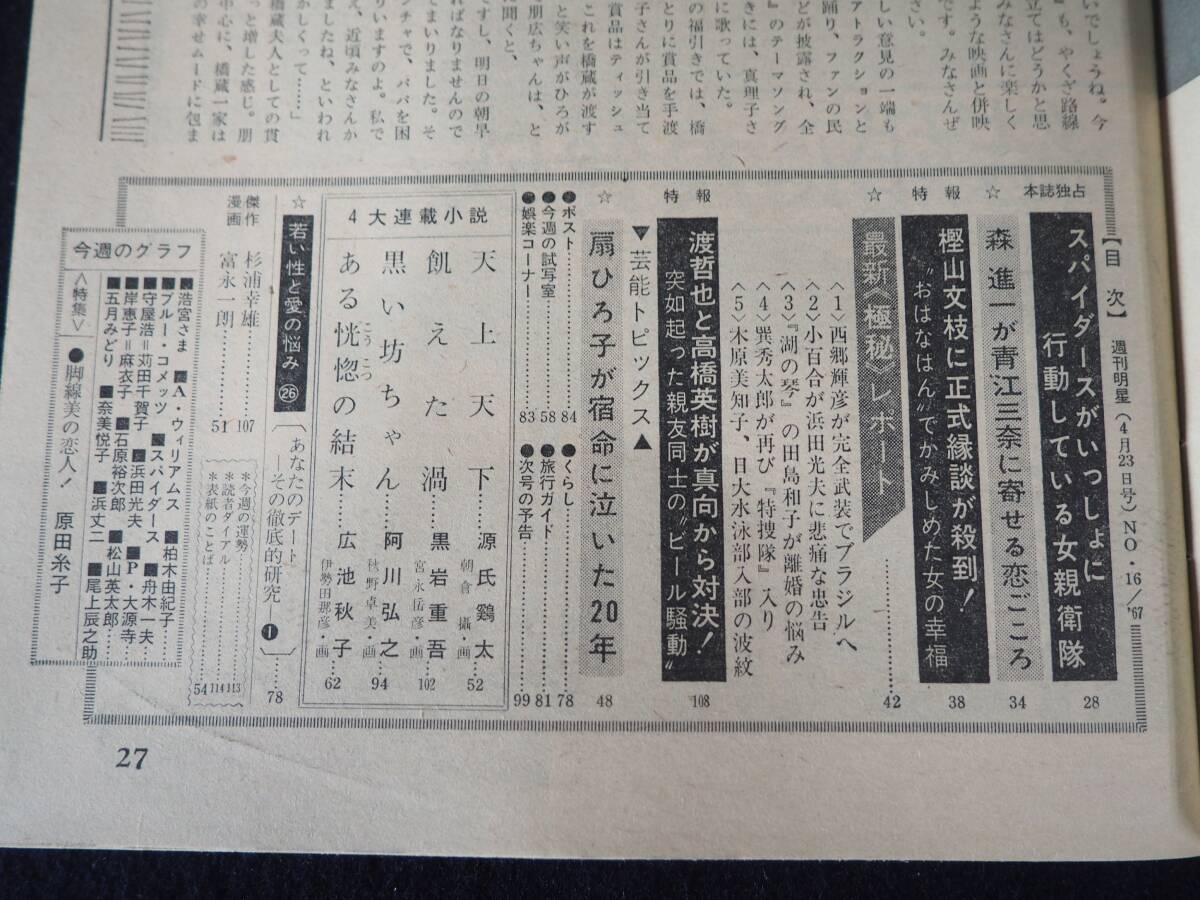 いでしょうね。今
』も、やくざ路線
立てはどうかと思
みなさんに楽しく
ような映画と併映
です。みなさんぜ
さい。
しい意見の一端も
アトラクションと
踊り、ファンの民
どが披露され、全
』のテーマソング
きには、真理子さ
に歌っていた。
の福引きでは、橋
とりに賞品を手渡
子さんが引き当て
賞品はティッシュ
これを橋蔵が渡す
と笑い声がひろが
朋広ちゃんは、と
に聞くと、
ですし、明日の朝早
ればなりませんので
てまいりました。そ
ンチャで、パパを困
りいますのよ。私で
え、近頃みなさんか
ましたね、といわれ
かしくって……」
橋蔵夫人としての貫
っと増した感じ。朋
中心に、橋蔵一家は
の幸せムードに包ま
【目次】週刊明星(4月23日号)NO・16/'67
本誌独占
スパイダースがいっしょに
行動している女親衛隊
28
☆
森進一が青江三奈に寄せる恋ごころ
34
特報
樫山文枝に正式縁談が殺到!
“おはなはん”でかみしめた女の幸福
38
☆
最新〈極秘〉レポート
42
〈1〉西郷輝彦が完全武装でブラジルへ
〈2〉小百合が浜田光夫に悲痛な忠告
〈3〉『湖の琴』の田島和子が離婚の悩み
〈4〉巽秀太郎が再び『特捜隊』入り
〈5〉木原美知子、日大水泳部入部の波紋
特報
渡哲也と高橋英樹が真向から対決!
突如起った親友同士の“ビール騒動”
108
▼芸能トピックス▲
☆
扇ひろ子が宿命に泣いた20年
48
●ポスト……84
●今週の試写室……58
●娯楽コーナー……83
●くらし……78
●旅行ガイド……81
●次号の予告……99
4大連載小説
天上天下……源氏鶏太
朝倉摂・画
52
飢えた渦……黒岩重吾
宮永岳彦・画
102
黒い坊ちゃん……阿川弘之
秋野卓美・画
94
ある恍惚の結末……広池秋子
こうこつ
伊勢田那彦・画
62
☆
若い性と愛の悩み㉖
〔あなたのデート
その徹底的研究❶〕……78
傑作漫画
杉浦幸雄……107
富永一朗……51
*今週の運勢……113
*読者ダイアル……114
*表紙のことば……54
今週のグラフ
■浩宮さま ■A・ウィリアムス ■柏木由紀子
■ブルー・コメッツ ■スパイダース ■舟木一夫
■守屋浩=苅田千賀子 ■浜田光夫 ■P・大源寺
■岸恵子=麻衣子 ■石原裕次郎 ■松山英太郎
■五月みどり ■奈美悦子 ■浜丈二 ■尾上辰之助
〈特集〉 ●脚線美の恋人! 原田糸子
27